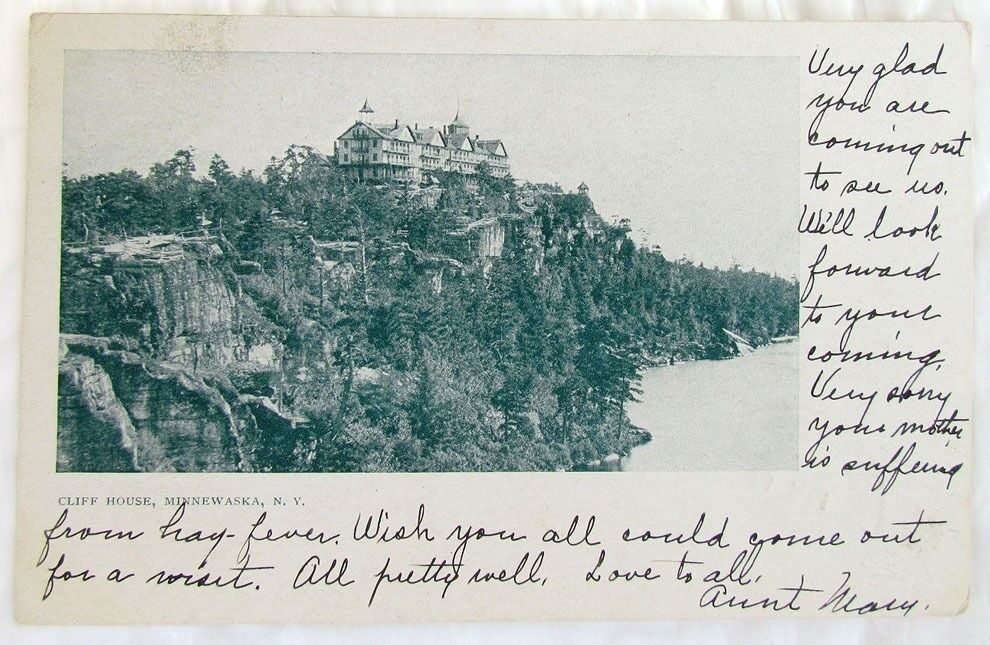 Very glad
you are
coming out
to see us.
We'll look
forward
to your
coming.
Very sorry
your mother
is suffering
CLIFF HOUSE, MINNEWASKA, N. Y.
from hay-fever. Wish you all could come out
for a visit. All pretty well. Love to all.
Aunt Mary.